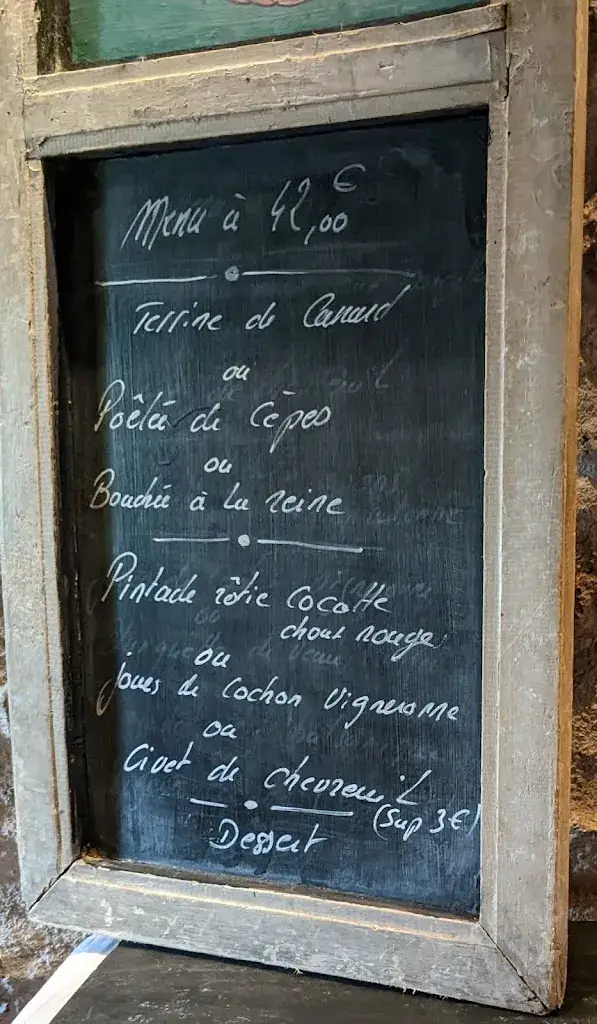 Menu à 42,00 €
Terrine de Canard
ou
Poêlée de Cèpes
ou
Bouchée à la reine
Pintade rôtie cocotte
choux rouge
ou
joues de Cochon Vigneronne
ou
Civet de chevreuil
(Sup 3€)
Dessert